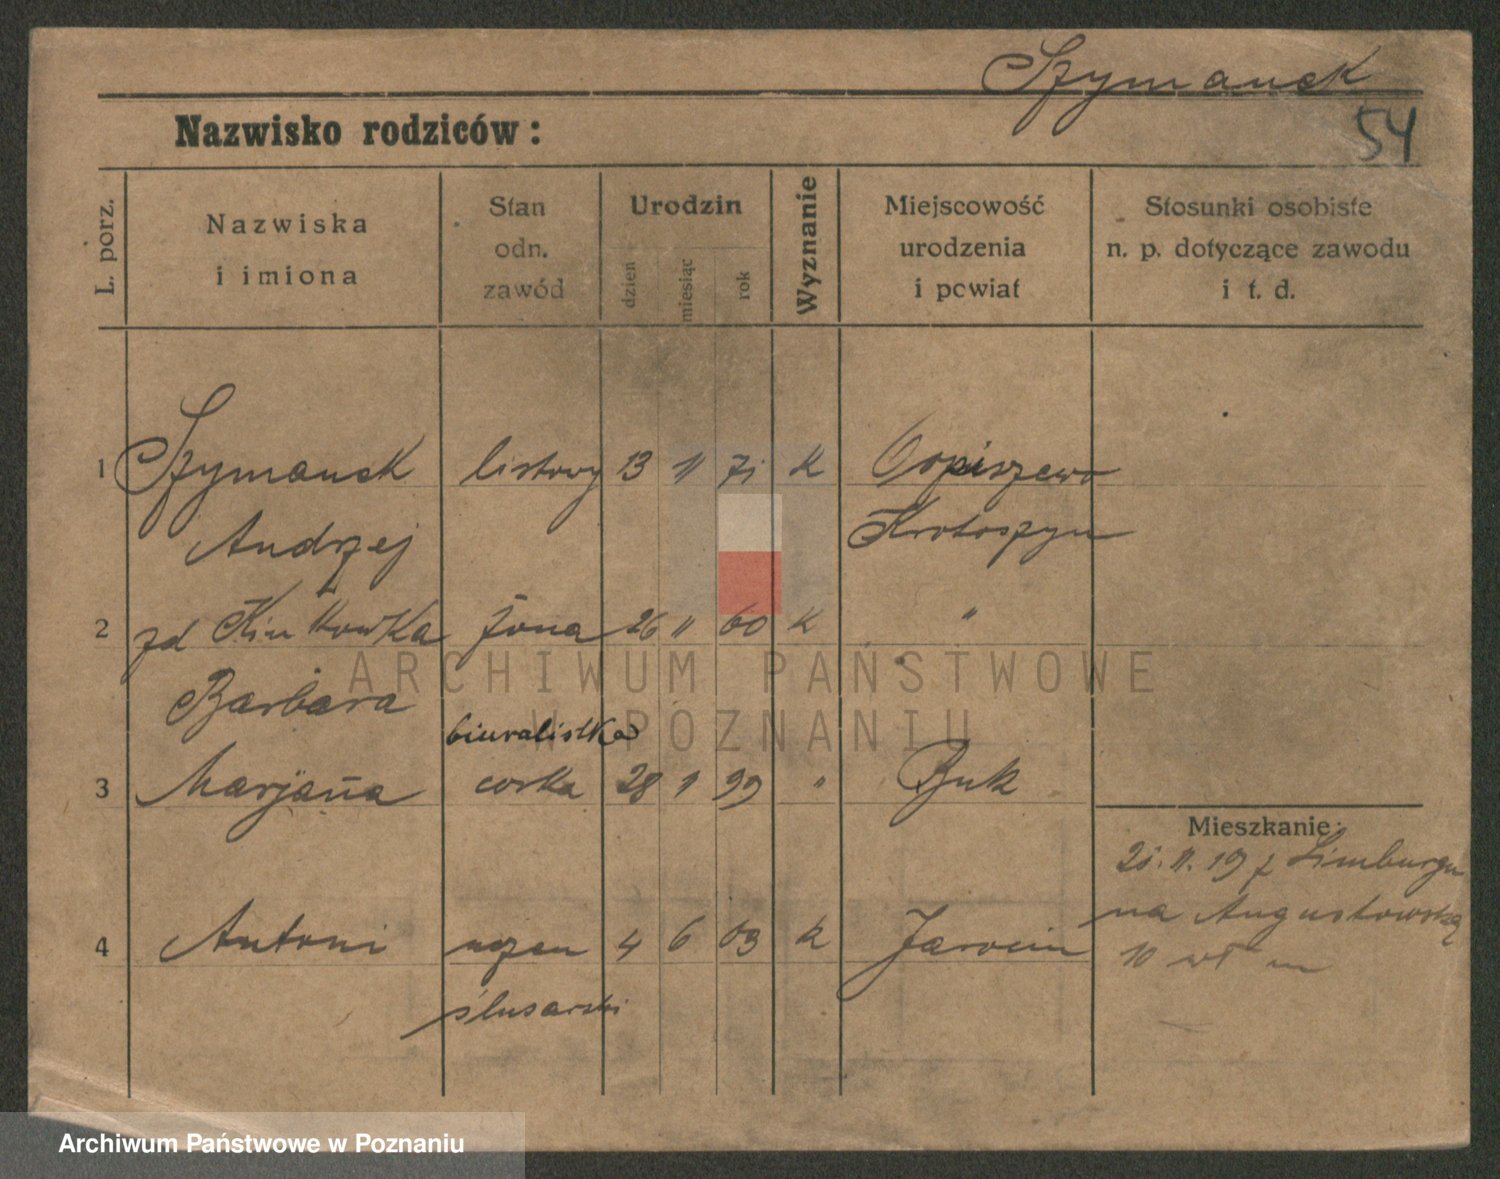 Szymanek
54
Nazwisko rodziców:
L. porz.
Nazwiska
i imiona
Stan
odn.
zawód
Urodzin
dzień
miesiąc
rok
Wyznanie
Miejscowość
urodzenia
i powiat
Stosunki osobiste
n. p. dotyczące zawodu
i t. d.
1 Szymanek listowy 13 11 71 K Orpiszewo
Andrzej Krotoszyn
2 zd żona 26 11 60 K "
Barbara
biuralistka
3 Marjanna corka 28 1 99 " Buk
Mieszkanie:
25. 11. 19 z Limburgu
na Augustowską
10 m
4 Antoni uczen 4 6 03 K Jarocin
ślusarski
ARCHIWUM PAŃSTWOWE
W POZNANIU
Archiwum Państwowe w Poznaniu